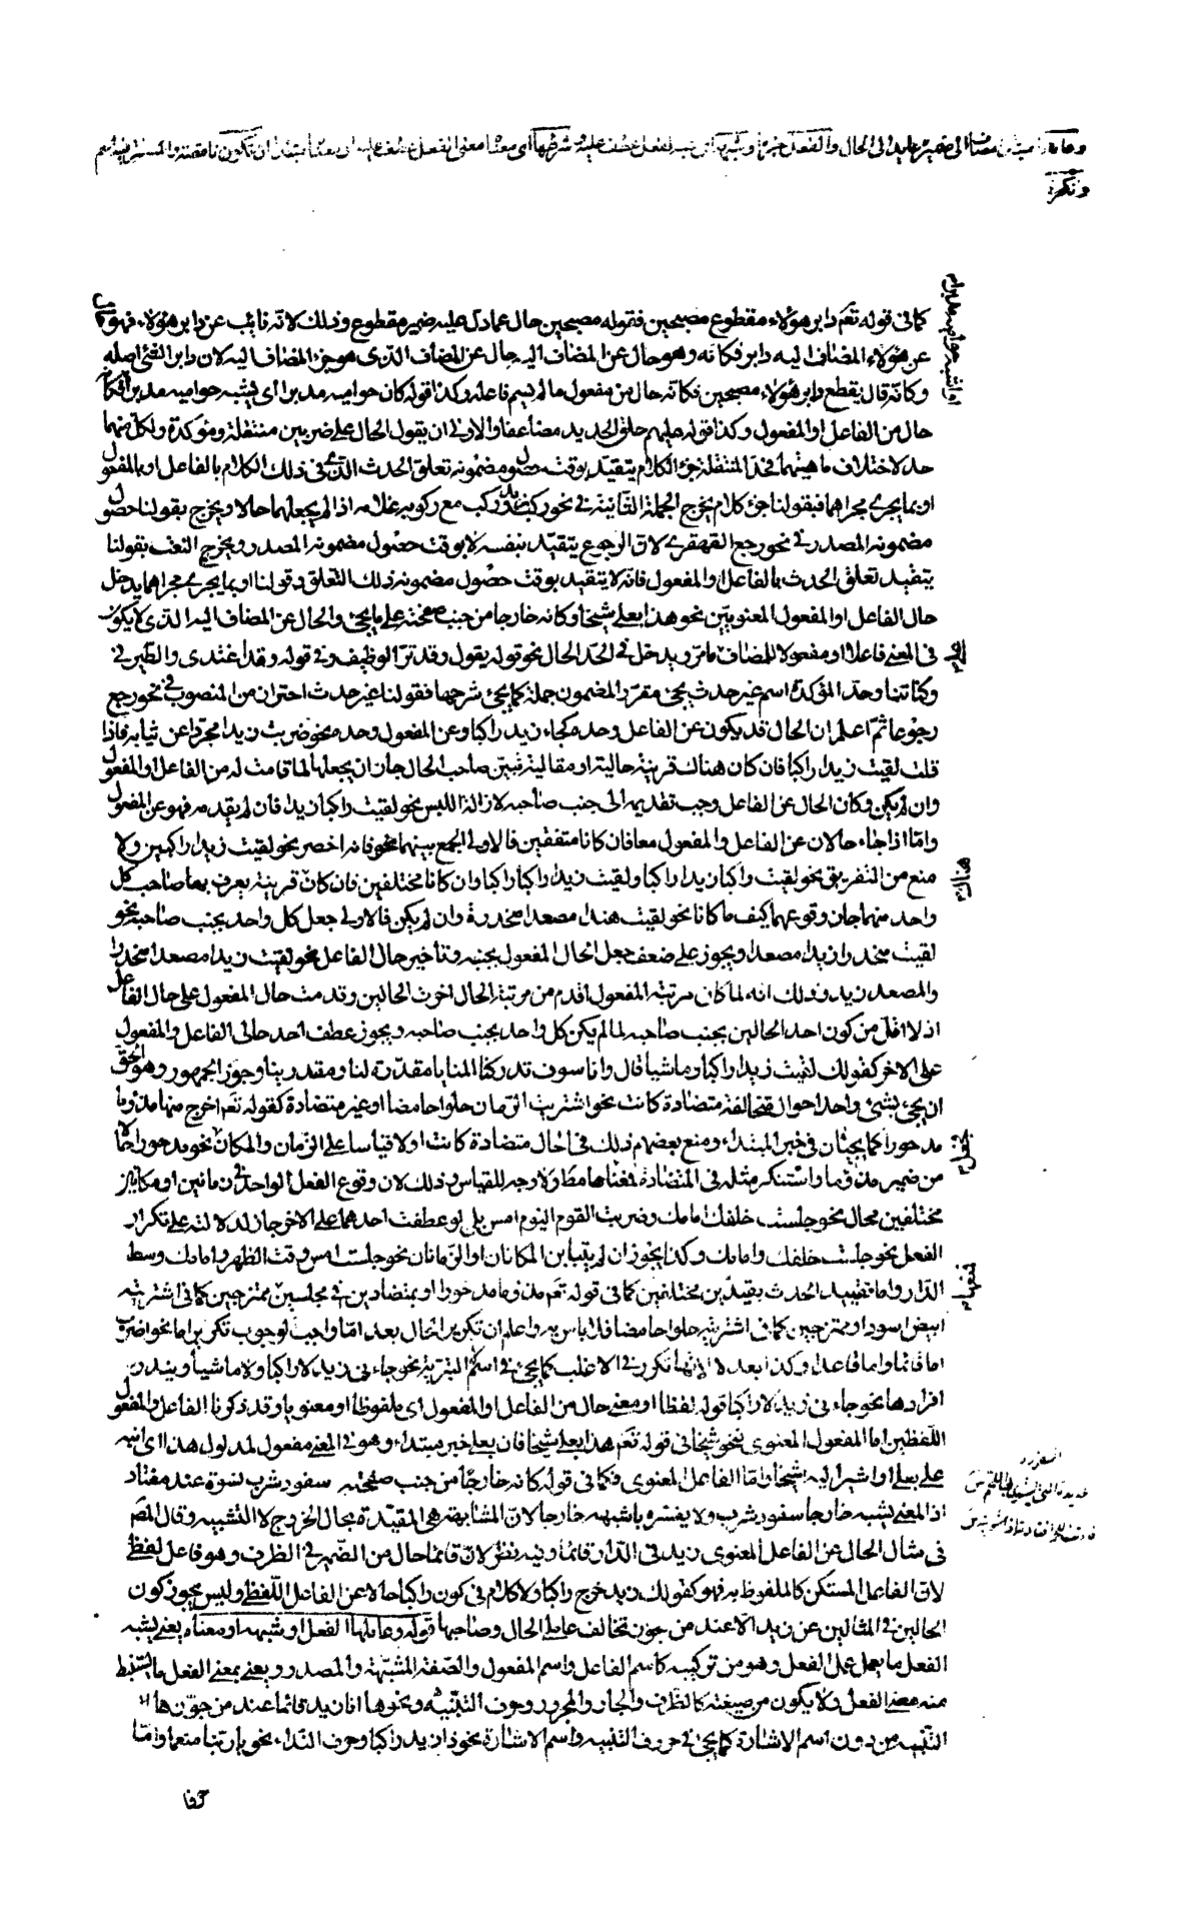 وعاملها مبتدا مضاف الى ضمير عايد الى الحال والفعل خبره او شبهه اى شبه الفعل عطف عليه شرطها اى معنا معنى الفعل عطف عليه مبتدا ان تكون
ونكرة
كما فى قوله تعم دابر هؤلاء مقطوع مصبحين فقوله مصبحين حال عما دل عليه ضمير مقطوع وذلك لانه نائب عن دابر هؤلاء فهو
عن هؤلاء المضاف اليه دابر فكانه وهو حال عن المضاف اليه حال عن المضاف الذى هو جزء المضاف اليه لان دابر الشئ اصله
وكانه قال يقطع دابر هؤلاء مصبحين فكانه حال من مفعول ما لم يسم فاعله وكذا قوله كان حواميه مدبرا اى يشبه حواميه مدبرا فكانه
حال من الفاعل او المفعول وكذا قوله عليهم حلق الحديد مضاعفا والاولى ان يقول الحال على ضربين منتقلة ومؤكدة ولكل منهما
حد لاختلاف ماهيتهما فحد المنتقلة جزء الكلام يتقيد بوقت حصول مضمونه تعلق الحدث الذى فى ذلك الكلام بالفاعل او بالمفعول
او بما يجرى مجراهما فبقولنا جزء كلام يخرج الجملة الثانية فى نحو ركب زيد وركب مع ركوبه غلامه اذا لم يجعلها حالا ويخرج بقولنا حصول
مضمونه المصدر فى نحو رجع القهقرى لان الرجوع يتقيد بنفسه لا بوقت حصول مضمونه المصدر ويخرج النعت بقولنا
يتقيد تعلق الحدث بالفاعل او المفعول فانه لا يتقيد بوقت حصول مضمونه ذلك التعلق وقولنا او بما يجرى مجراهما يدخل
حال الفاعل او المفعول المعنويين نحو هذا بعلى شيخا وكانه خارجا من جنب صفحته على ما يجئ والحال عن المضاف اليه الذى لا يكون
فى المعنى فاعلا او مفعولا للمضاف مامر ويدخل فى الحد الحال نحو قوله يقول وقد تر الوظيف وفى قوله وقد اغتدى والطير فى
وكناتها وحد المؤكدة اسم غير حدث يجئ مقررا لمضمون جملة كما يجئ شرحها فقولنا غير حدث احتراز من المنصوب فى نحو رجع
رجوعا ثم اعلم ان الحال قد يكون عن الفاعل وحده كجاء زيد راكبا وعن المفعول وحده نحو ضربت زيدا مجردا عن ثيابه فاذا
قلت لقيت زيدا راكبا فان كان هناك قرينة حالية او مقالية تبين صاحب الحال جاز ان يجعلها لما قامت له من الفاعل او المفعول
وان لم يكن وكان الحال عن الفاعل وجب تقديمه الى جنب صاحبه لازالة اللبس نحو لقيت راكبا زيدا فان لم يقدمه فهو عن المفعول
واما اذا جاء حالان عن الفاعل والمفعول معا فان كانا متفقين فالاولى الجمع بينهما فانه اخصر نحو لقيت زيدا راكبين ولا
منع من التفريق نحو لقيت راكبا زيدا راكبا ولقيت زيدا راكبا راكبا وان كانا مختلفين فان كان قرينة يعرف بها صاحب كل
واحد منهما جاز وقوعهما كيف ما كانا نحو لقيت هندا مصعدا منحدرة وان لم يكن فالاولى جعل كل واحد بجنب صاحبه نحو
لقيت منحدرا زيدا مصعدا ويجوز على ضعف جعل الحال المفعول بجنبه وتاخير حال الفاعل نحو لقيت زيدا مصعدا منحدرا
والمصعد زيد وذلك انه لما كان مرتبة المفعول اقدم من مرتبة الحال اخرت الحالين وقدمت حال المفعول على حال الفاعل
اذ لا اقل من كون احد الحالين بجنب صاحبه لما لم يكن كل واحد بجنب صاحبه ويجوز عطف احد حالى الفاعل والمفعول
على الاخر كقولك لقيت زيدا راكبا وماشيا قال وانا سوف تدركنا المنايا مقدرة لنا ومقدرينا وجوز الجمهور وهو الحق
ان يجئ بشئ واحد احوال متخالفة متضادة كانت نحو اشتريت الرمان حلوا حامضا او غير متضادة كقوله تعم اخرج منها مذؤما
مدحورا كما يجيئان فى خبر المبتداء ومنع بعضهم ذلك فى الحال متضادة كانت اولا قياسا على الزمان والمكان نحو مدحورا حالا
من ضمير مذؤما واستنكر مثله فى المتضادة فمنعها مطلقا ولا وجه للقياس وذلك لان وقوع الفعل الواحد فى زمانين او مكانين
مختلفين محال نحو جلست خلفك امامك وضربت القوم اليوم امس بلى لو عطفت احدهما على الاخر جاز لدلالته على تكرار
الفعل نحو جلست خلفك وامامك وكذا يجوز ان لم يتباين المكانان او الزمانان نحو جلست امس وقت الظهر وامامك وسط
الدار واما تقييد الحدث بقيدين مختلفين كما فى قوله تعم مذؤما مدحورا او بمتضادين فى مجلسين ممتزجين كما فى اشتريته
ابيض اسود او ممتزجين كما فى اشتريته حلوا حامضا فلا باس به واعلم ان تكرير الحال بعد اما واجب لوجوب تكرير اما نحو اضربه
اما قائما واما قاعدا وكذا بعد لا لانها تكرر فى الاغلب كما يجئ فى اسم لا التبرئة نحو جاءنى زيد لا راكبا ولا ماشيا ويندر
افرادها نحو جاءنى زيد لا راكبا قوله لفظا او معنى حال من الفاعل او المفعول اى ملفوظا او معنويا وقد ذكرنا الفاعل والمفعول
اللفظين اما المفعول المعنوى نحو شيخا فى قوله تعم هذا بعلى شيخا فان بعلى خبر مبتداء وهو فى المعنى مفعول لمدلول هذا اى انبه
على بعلى او اشير اليه شيخا واما الفاعل المعنوى فكما فى قوله كانه خارجا من جنب صفحته سفود شرب نسوه عند مفتاد
اذ المعنى يشبه خارجا سفود شرب ولا يفسره باشبهه خارجا لان المشابهة هى المقيدة بحال الخروج لا التشبيه وقال المص
فى مثال الحال عن الفاعل المعنوى زيد فى الدار قائما وفيه نظر لان قائما حال من الضمير فى الظرف وهو فاعل لفظى
لان الفاعل المستكن كالملفوظ به فهو كقولك زيد خرج راكبا ولا كلام فى كون راكبا حالا عن الفاعل اللفظى وليس يجوز كون
الحالين فى المثالين عن زيد الا عند من جوز تخالف عامل الحال وصاحبها قوله وعاملها الفعل او شبهه او معناه يعنى بشبه
الفعل ما يعمل عمل الفعل وهو من تركيبه كاسم الفاعل واسم المفعول والصفة المشبهة والمصدر ويعنى بمعنى الفعل ما يستنبط
منه معنى الفعل ولا يكون من صيغته كالظرف والجار والمجرور وحرف التنبيه ونحوها انا زيد قائما عند من جوزها
التنبيه من دون اسم الاشارة كما يجئ فى حروف التنبيه واسم الاشارة نحو ذا زيد راكبا وحرف النداء نحو يا ربنا منعما واما